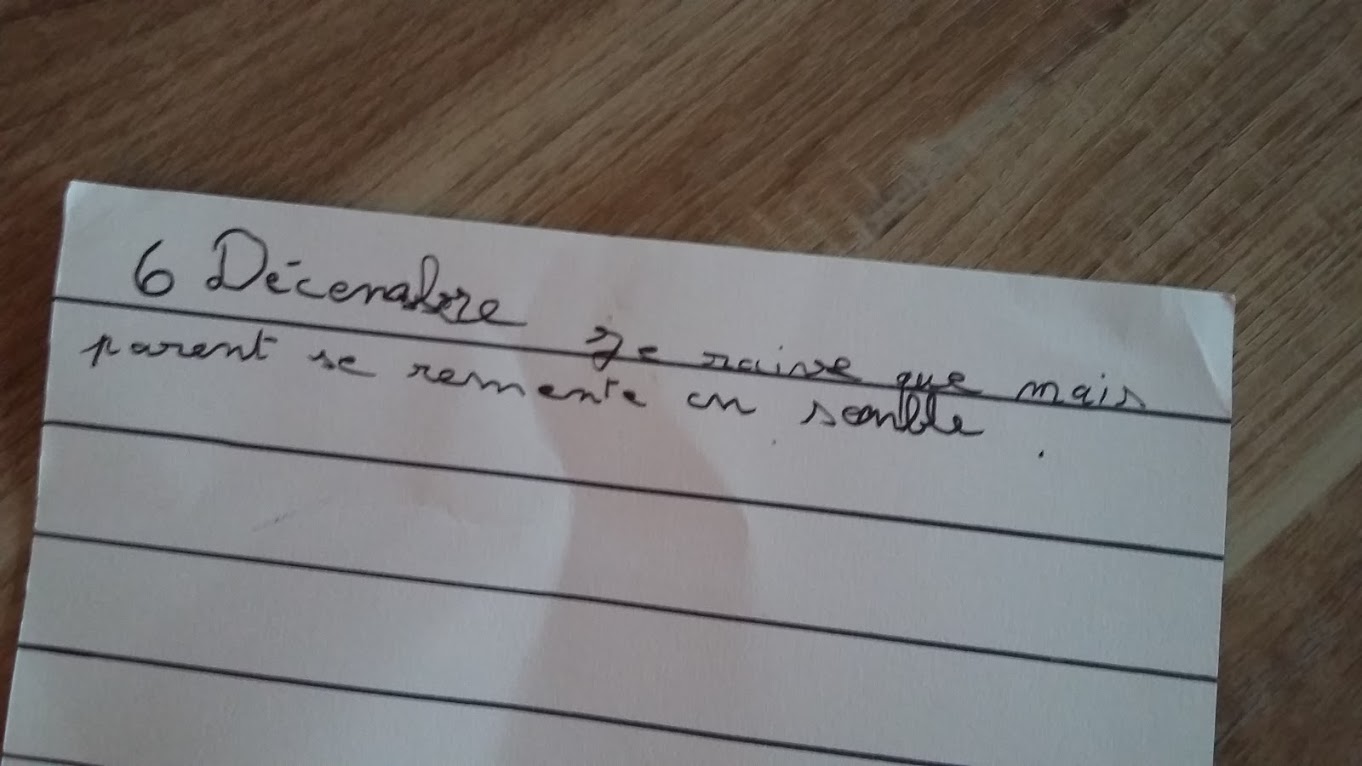 6 Décembre Je raive que mais
parent se remente en semble.